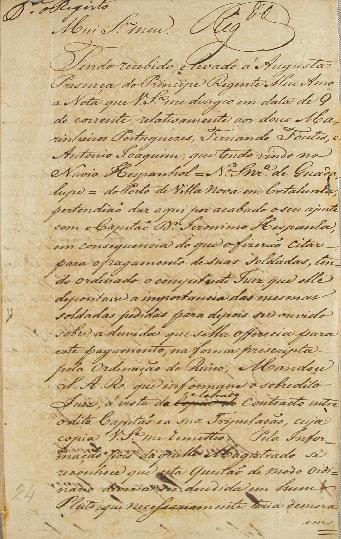 Registo
Reg.do
Mui Sr. meu.
Tendo recebido e levado a Augusta
Presença do Principe Regente Meu Amo
a Nota que V. Sa. me dirigio em data de 9
do corrente, relativamente aos dous Ma-
rinheiros Portuguezes, Fernando Fontes, e
Antonio Joaquim, que tendo vindo no
Navio Hespanhol = N. Snra. de Guada-
lupe = do Porto de Villa Nova em Catalunha
pertendião dar aqui por acabado o seu ajuste
com o Capitão Dn. Jeronimo Hespanha,
em consequencia do que o fizerão citar
para o pagamento de suas Soldadas, ten-
do ordenado o competente Juiz que elle
depozitasse a importancia das mesmas
Soldadas pedidas para depois ser ouvido
sobre a duvida que se lhe offerecia para
este pagamento, na forma prescripta
pela Ordenação do Reino; Mandou
S. A. R. que informasse o sobredito
Juiz, a vista do celebrado Contracto entre
o dito Capitão e a sua Tripulação, cuja
copia V. Sa. me remetteo. Pela Infor-
mação do Magistrado se
reconhece que esta Questão de modo Ordi-
nario decidida em hum
Pleito que necessariamente teria demora
em
24